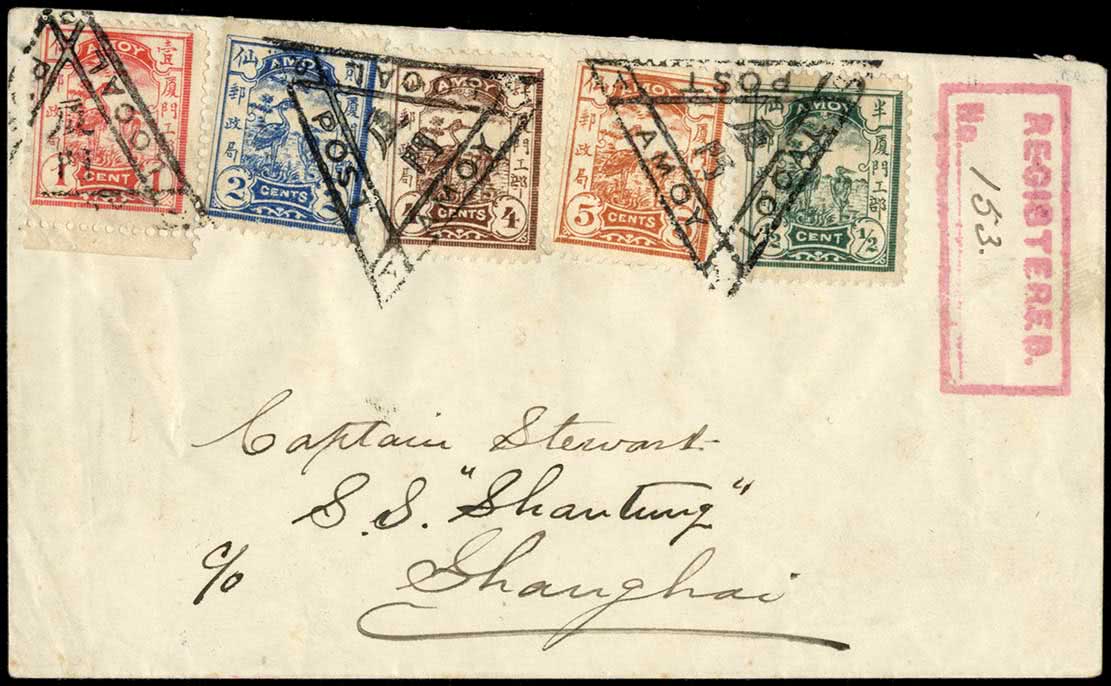 AMOY
壹
仙
廈門工部
郵政局
1 CENT 1
LOCAL
AMOY
仙
廈門工部
郵政局
2 CENTS 2
POST
LOCAL
AMOY
廈門工部
郵政局
CENTS 4
AMOY
廈門
仙
郵政局
5 CENTS 5
AMOY
POST
LOCAL
廈門
AMOY
半
仙
廈門工部
CENT ½
REGISTERED.
No. 153.
Captain Stewart
S.S. "Shantung"
c/o Shanghai